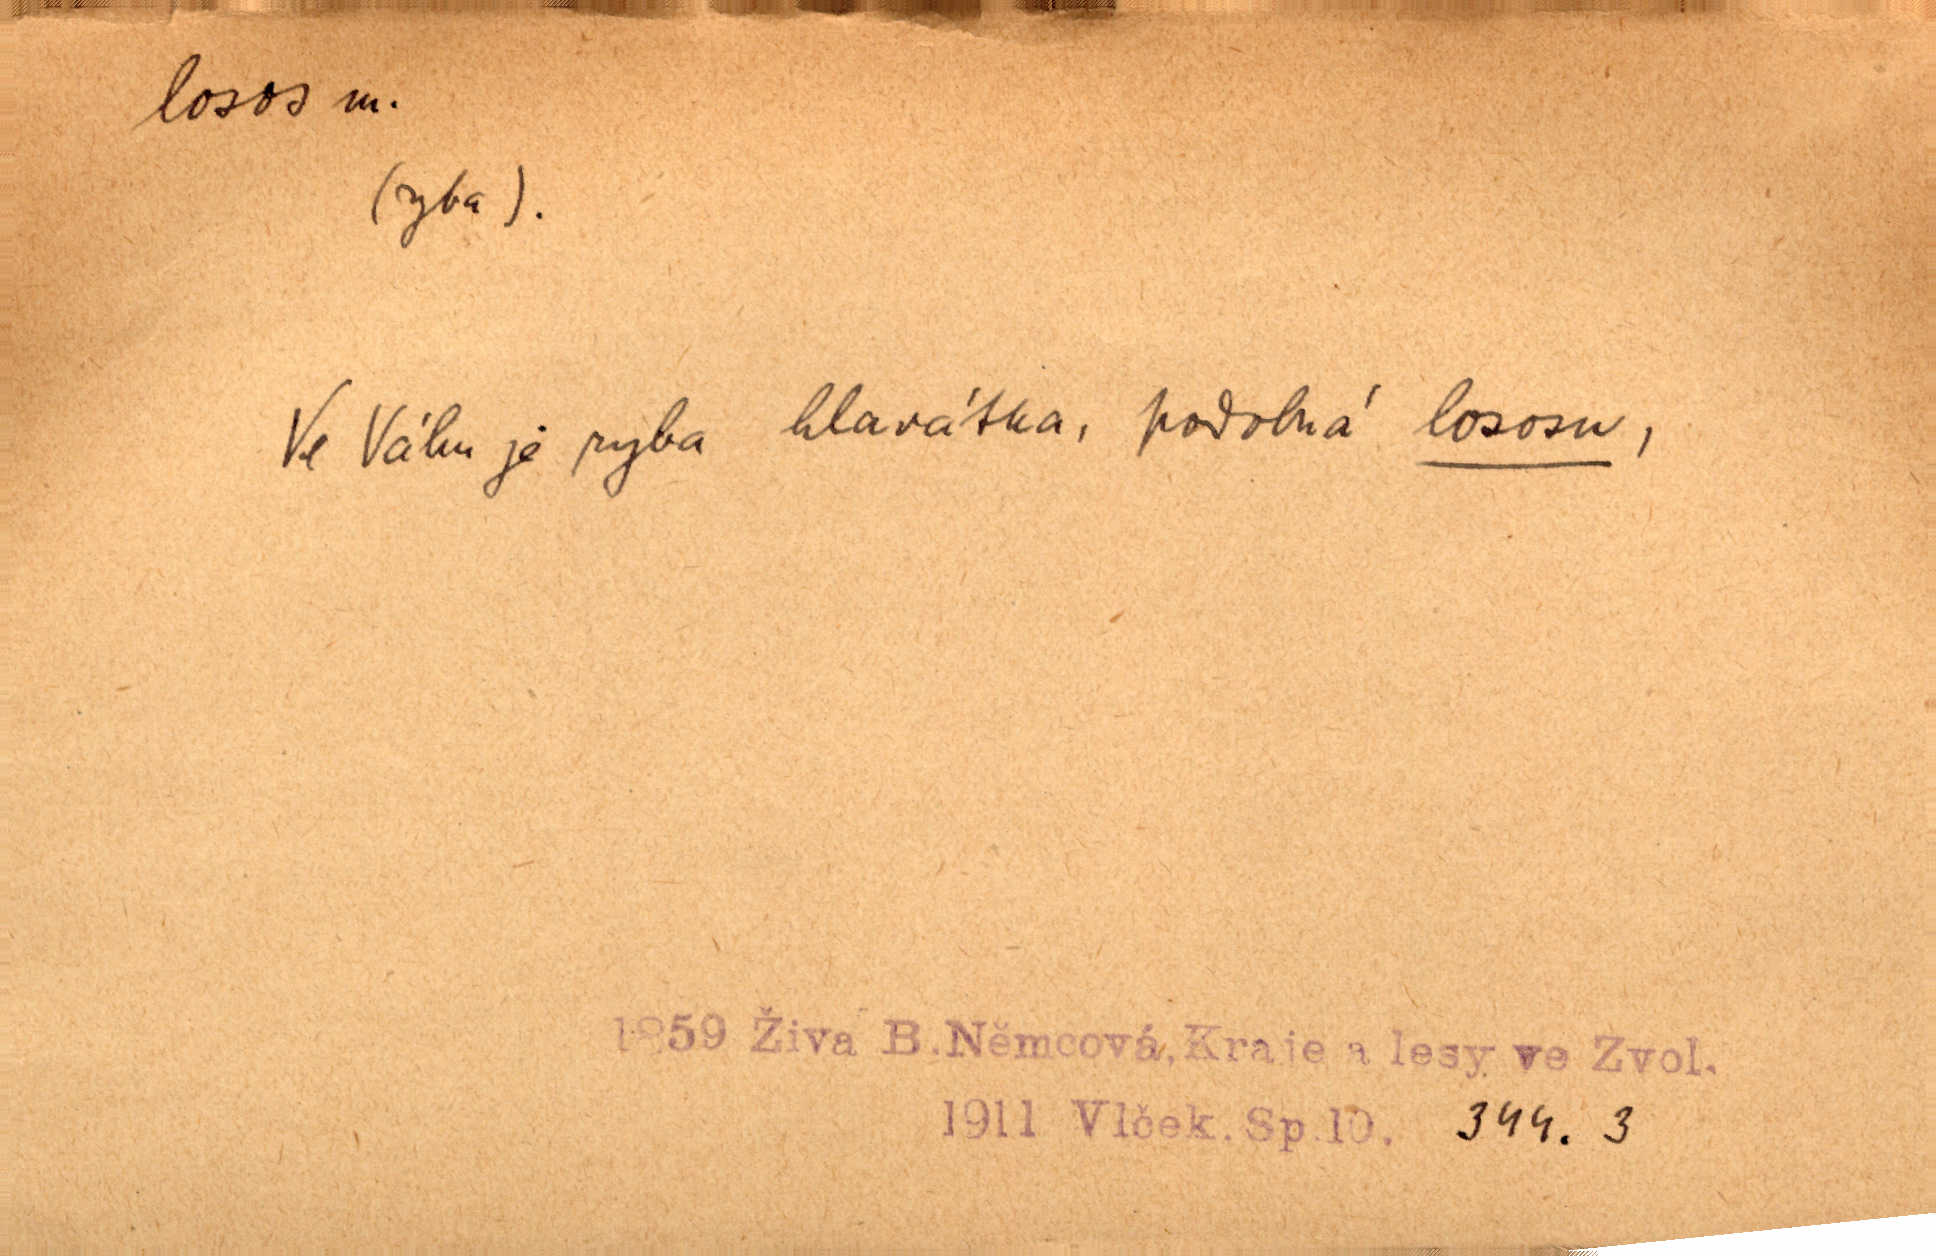 losos m.
(ryba).
Ve Váhu je ryba hlavátka, podobná lososu,
1859 Živa B.Němcová,Kraje a lesy ve Zvol.
1911 Vlček.Sp.10. 344. 3